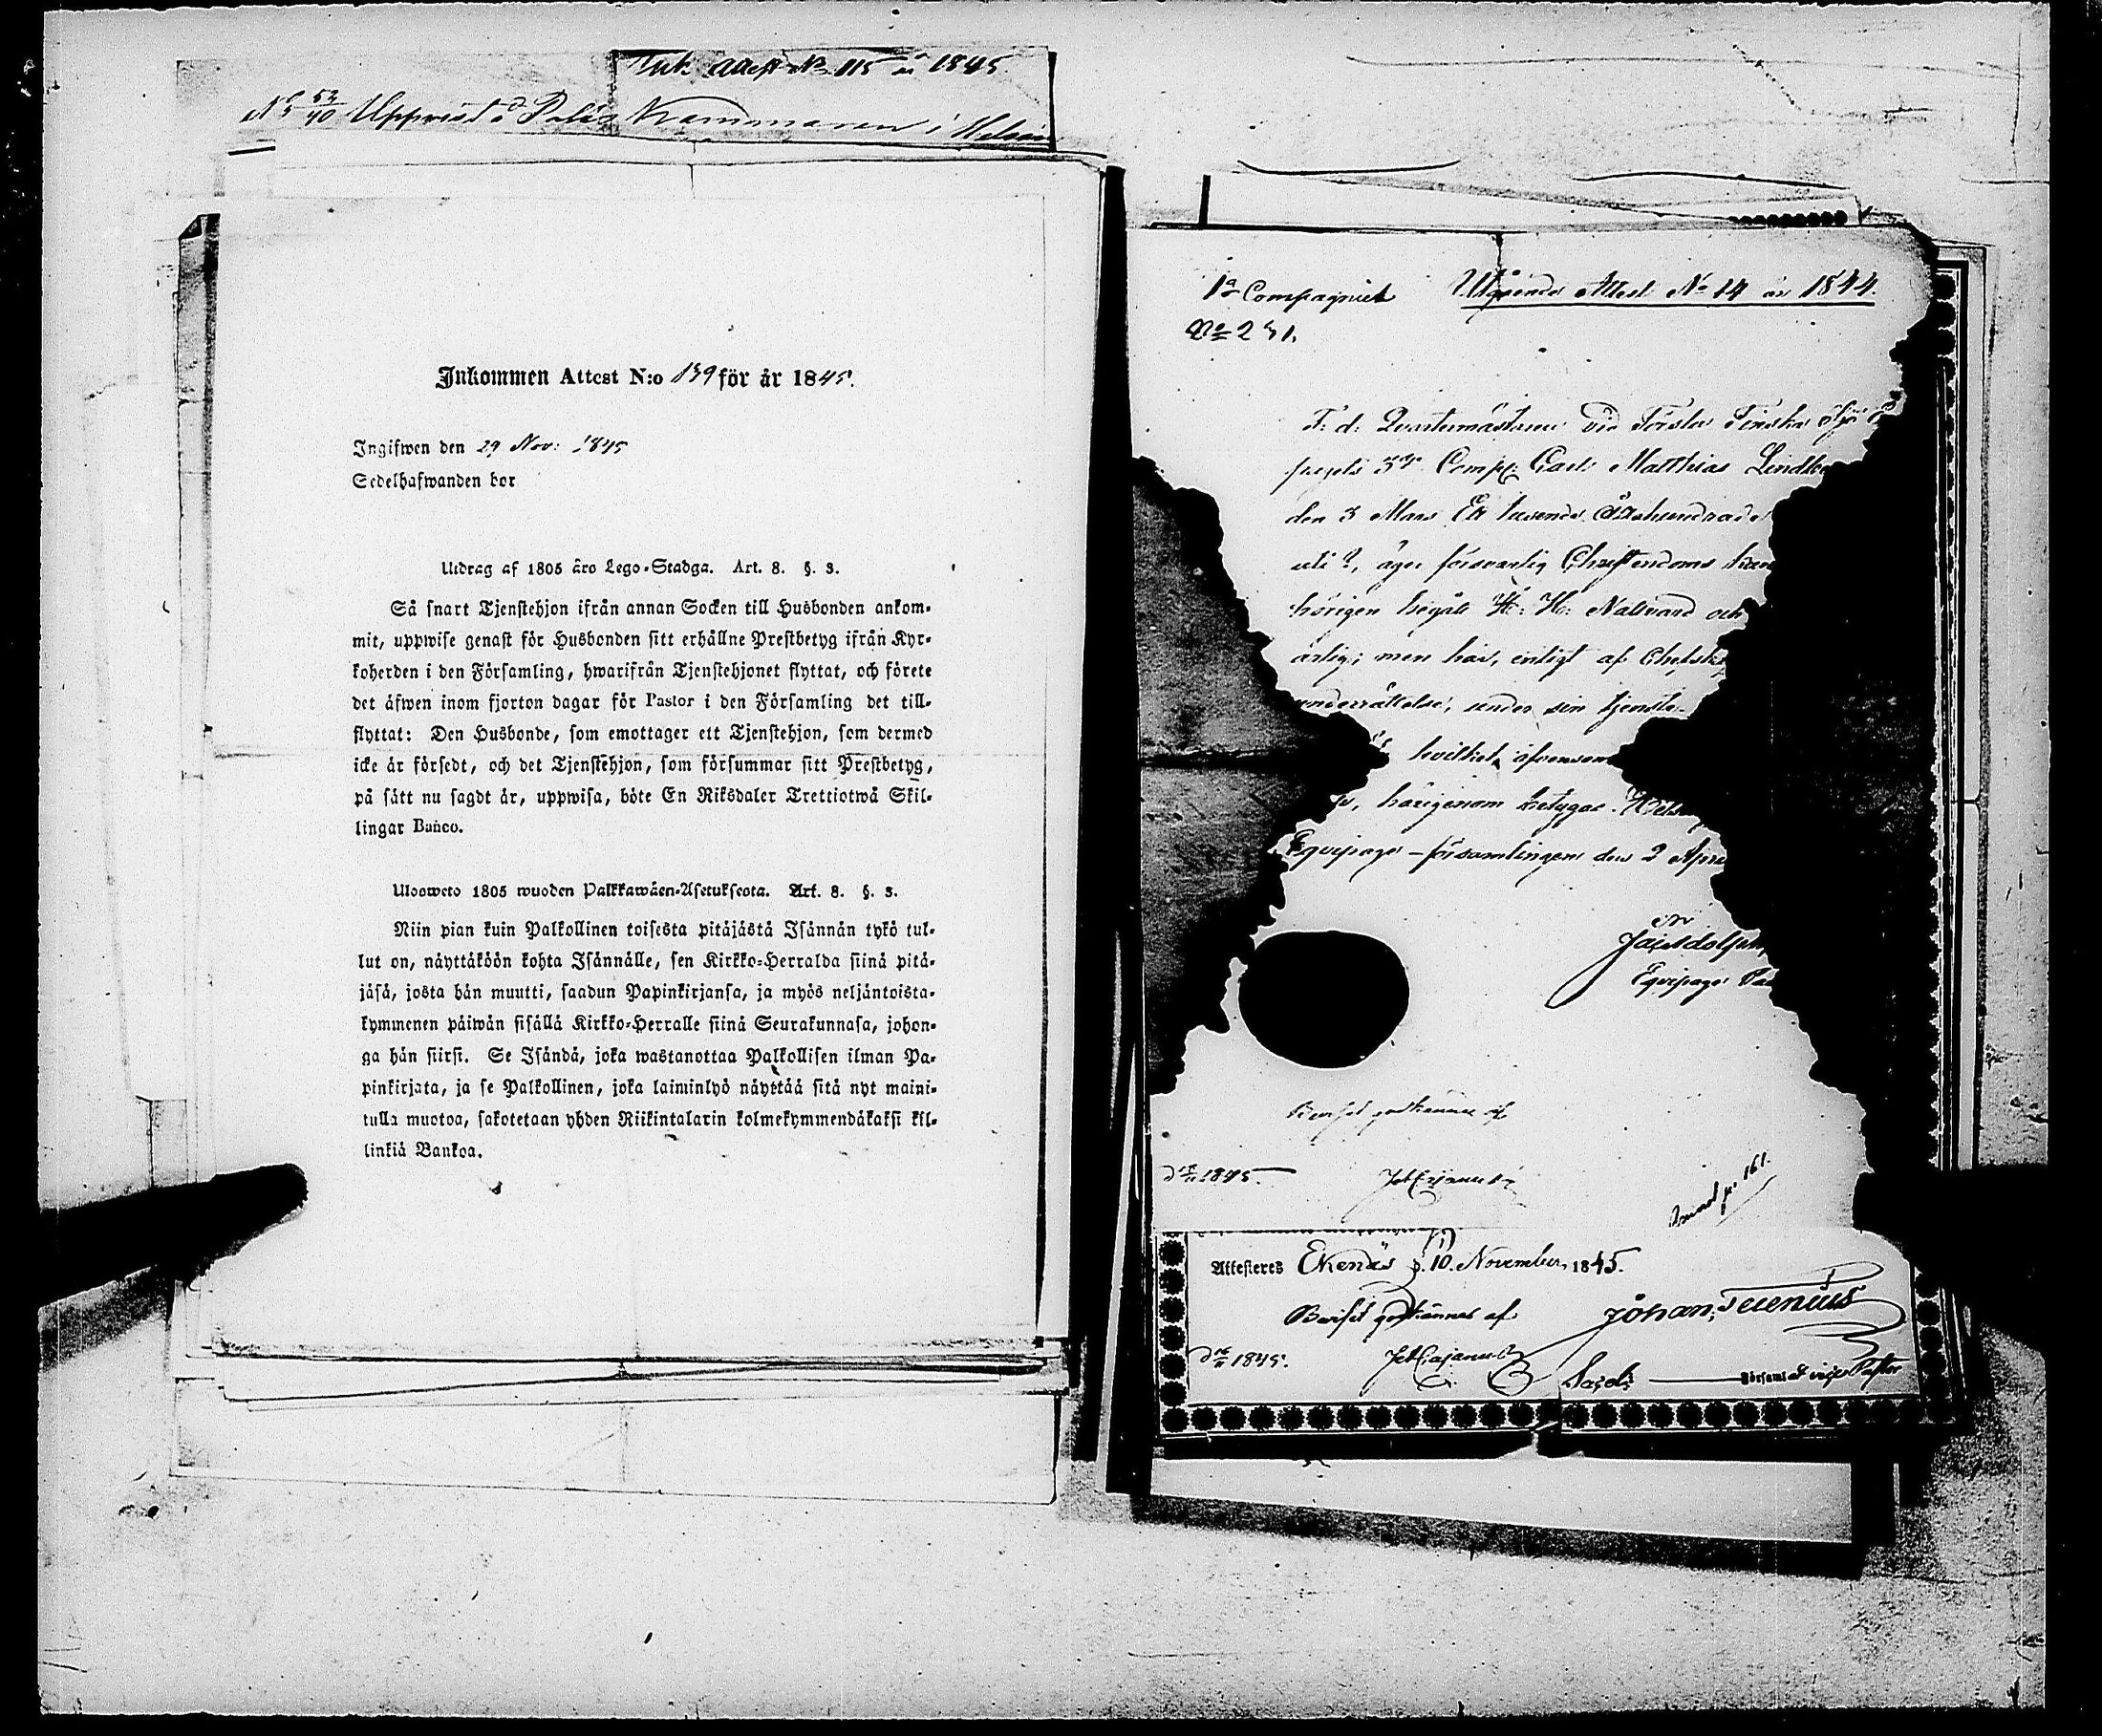 Ink. Attest No 115 år 1845.
No 52/40 Uppvist å Polis Kammaren i Helsin
Inkommen Attest N:o 139 för år 1845.
Ingifwen den 29 Nov: 1845
Sedelhafwanden bor
Utdrag af 1805 års Lego-Stadga. Art. 8. §. 3.
Så snart Tjenstehjon ifrån annan Socken till Husbonden ankom-
mit, uppwise genast för Husbonden sitt erhållne Prestbetyg ifrån Kyr-
koherden i den Församling, hwarifrån Tjenstehjonet flyttat, och förete
det äfwen inom fjorton dagar för Pastor i den Församling det till-
flyttat: Den Husbonde, som emottager ett Tjenstehjon, som dermed
icke är försedt, och det Tjenstehjon, som försummar sitt Prestbetyg,
på sätt nu sagdt är, uppwisa, böte En Riksdaler Trettiotwå Skil-
lingar Banco.
Ulosweto 1805 wuoden Palkkawäen-Asetuksesta. Art. 8. §. 3.
Niin pian kuin Palkollinen toisesta pitäjästä Isännän tykö tul-
lut on, näyttäköön kohta Isännälle, sen Kirkko-Herralda siinä pitä-
jäsä, josta hän muutti, saadun Papinkirjansa, ja myös neljäntoista-
kymmenen päiwän sisällä Kirkko-Herralle siinä Seurakunnasa, johon-
ga hän siirsi. Se Isändä, joka wastanottaa Palkollisen ilman Pa-
pinkirjata, ja se Palkollinen, joka laiminlyö näyttää sitä nyt maini-
tulla muotoa, sakotetaan yhden Riikintalarin kolmekymmendäkaksi kil-
linkiä Bankoa.
1a Compagniet Utgående Attest No 14 år 1844.
No 231.
F. d. Qvartermästaren vid Första Finska Sjö E
pagets 3dje Comp: Carl Matthias Lindbe
den 3 Mars Ett tusende Åttahundrade
uti ?, äger försvarlig Christendoms kun
hörigen begått H: H: Nattvard och
ärlig; men har, enligt af Chefsk
underrättelse, under sin tjenste-
hvilket äfvensom
härigenom betygar. Hels
Equipage-församlingen den 2 Apri
Equipage Pas
Beviset godkännes af
d 1845. Joh Cajanus
161.
Attesteres Ekenäs d. 10. November 1845.
Beviset godkännes af Johan
d 1845. Joh Cajanus
Församl vice Pastor